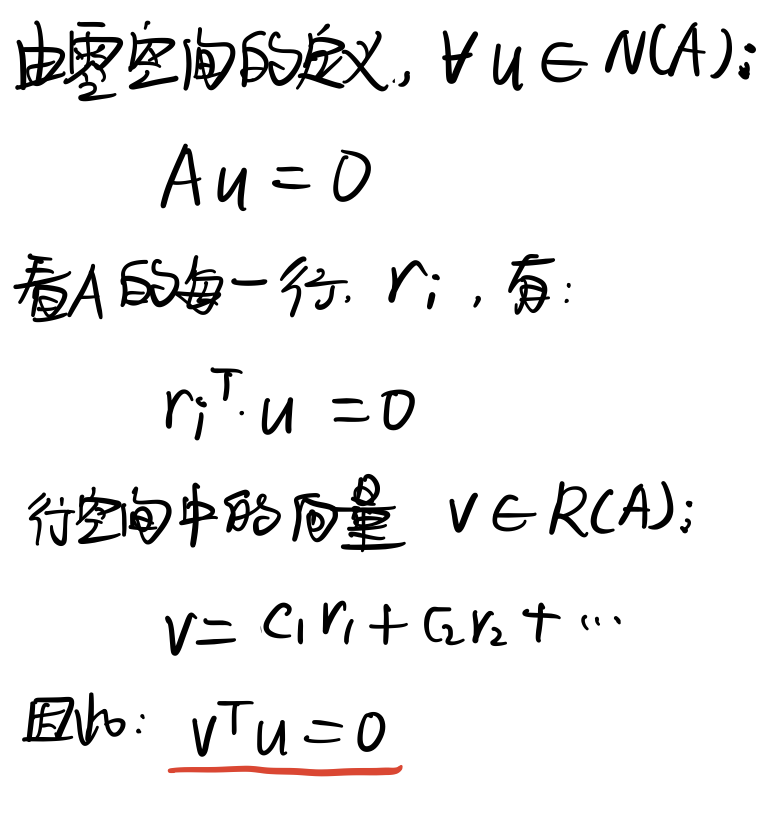 由零空间的定义, ∀ u ∈ N(A):
Au = 0
看A的每一行, rᵢ, 有:
rᵢᵀ·u = 0
行空间中的向量 v ∈ R(A);
v = c₁r₁ + c₂r₂ + ...
因此: vᵀu = 0